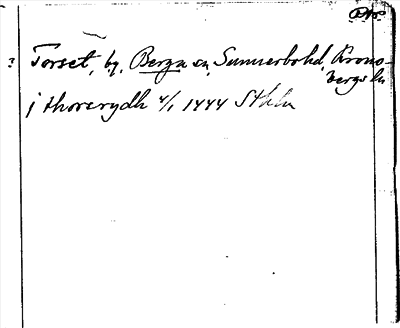 ? Torset, by, Berga sn, Sunnerbohd, Krono-
bergs län
j thorerydh 4/1 1444 Sthlm